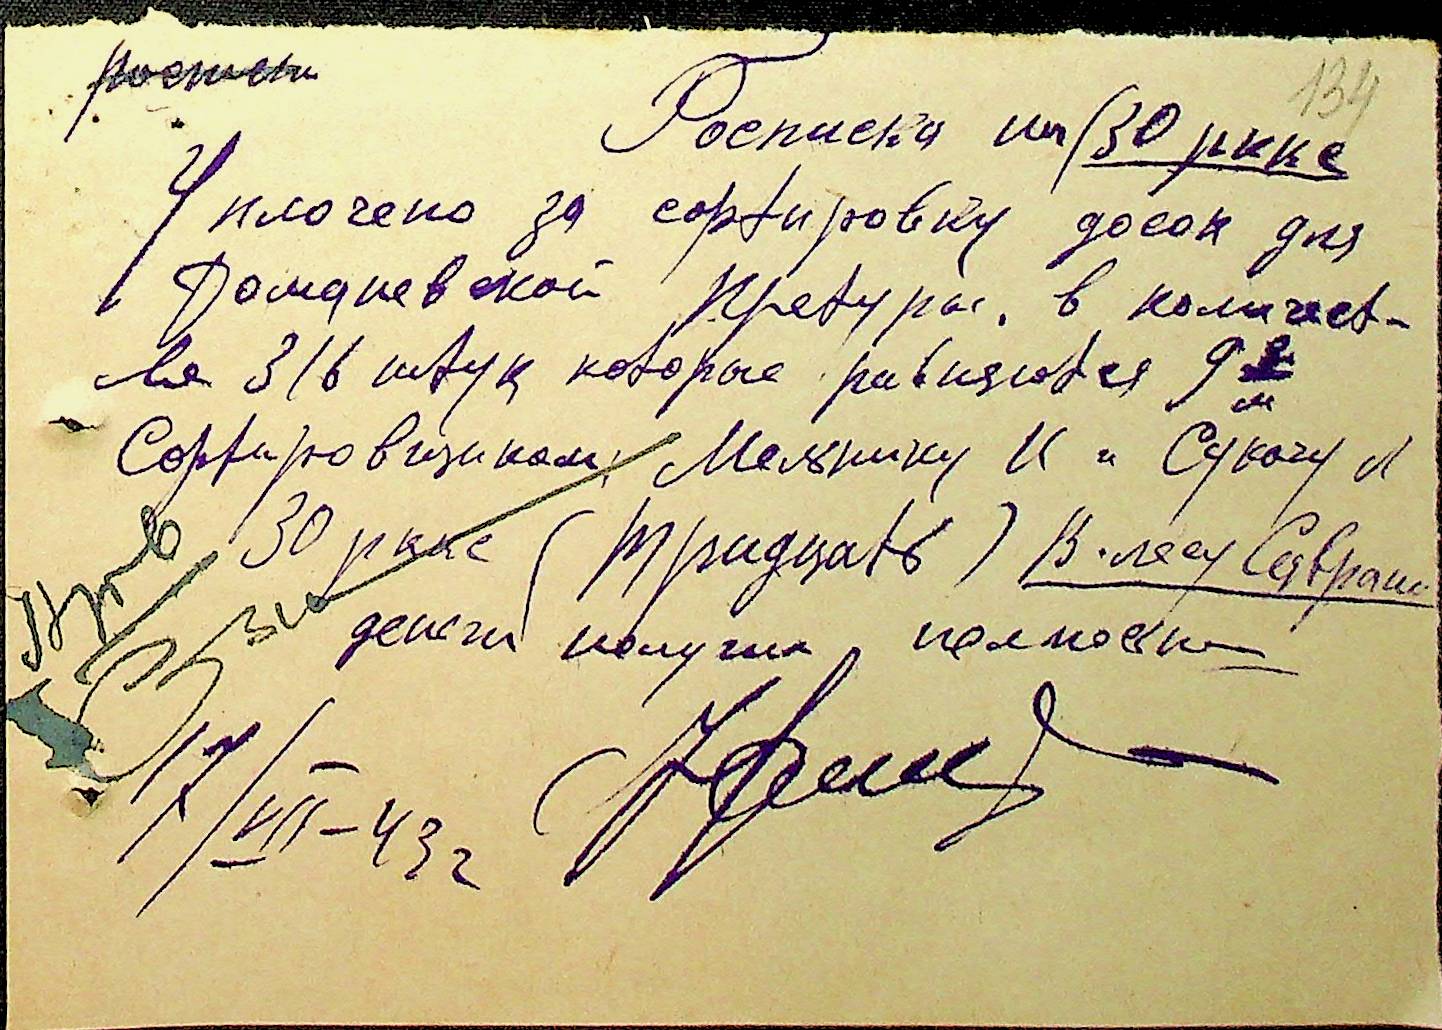 134
Росписка на (30 ркке
Уплочено за сортировку досок для
Доманевской Претуры. в количест-
ве 316 штук которые равняются 9
м
Сортировщикам, Мельнику И и Сукачу Л
30 ркке (тридцать) В. лесу Саврани
деньги получил полностью
17/VIII-43г